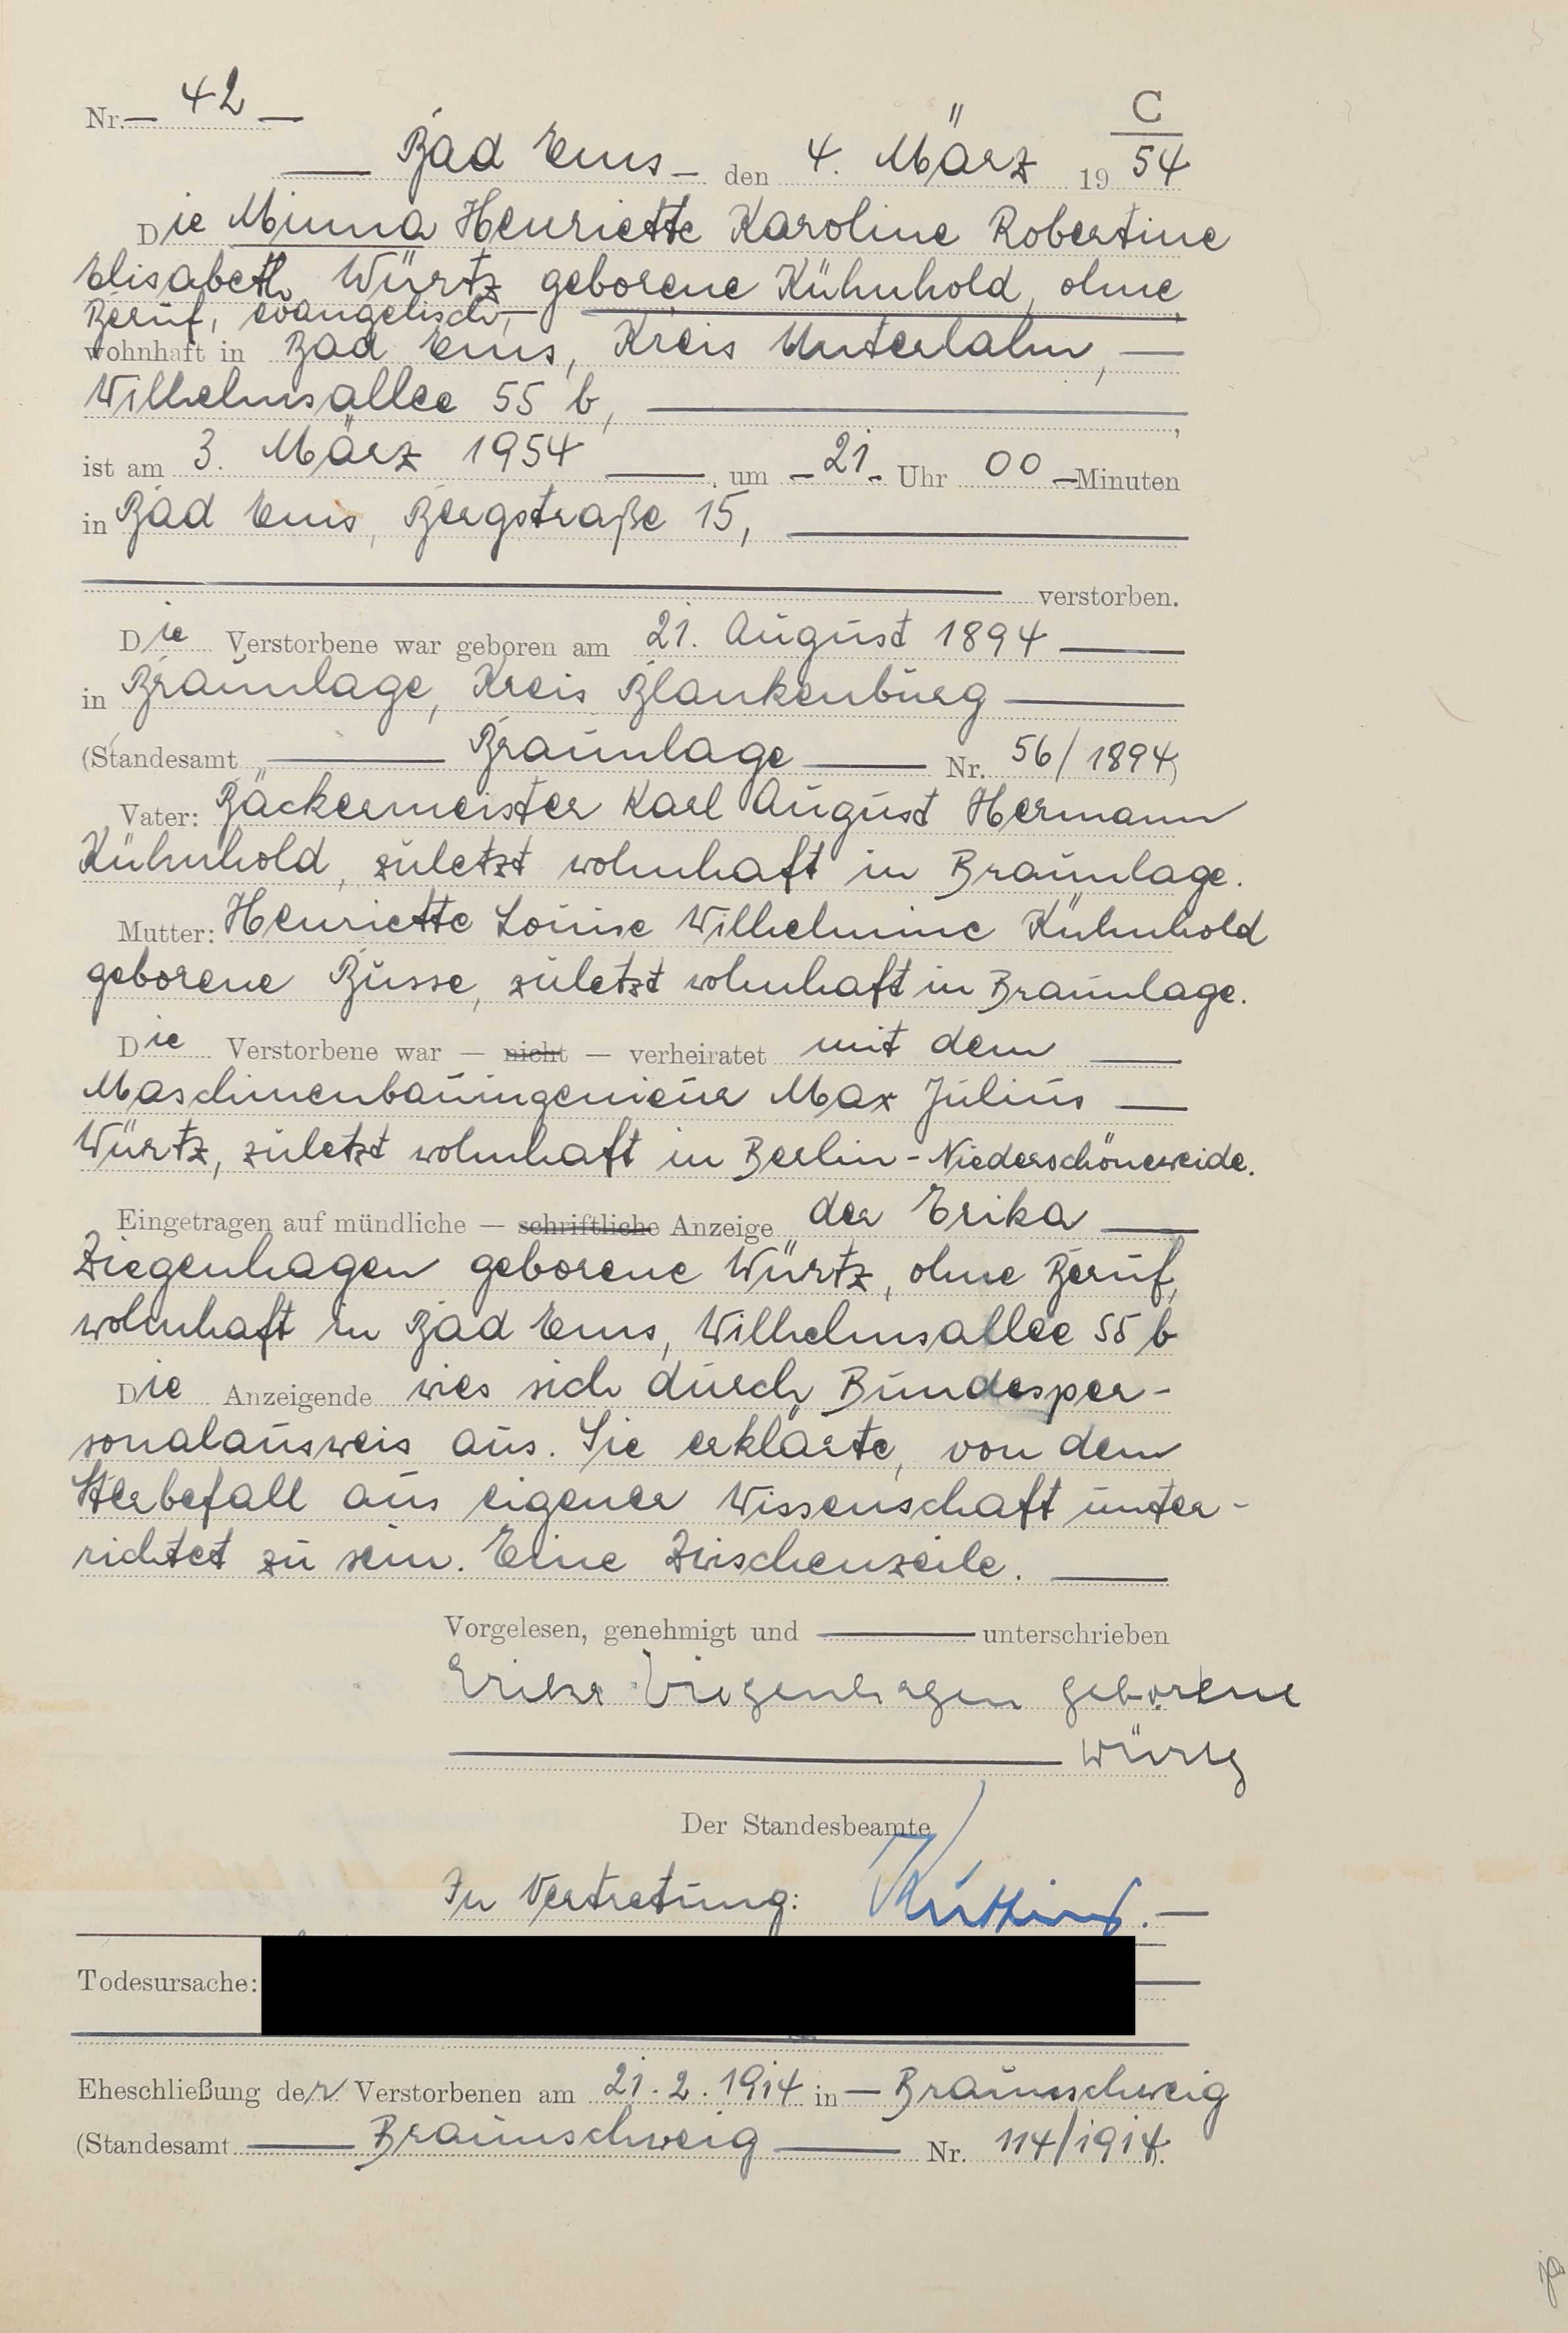 Nr. — 42 —
C
— Bad Ems — den 4. März 19 54
Die Minna Henriette Karoline Robertine
Elisabeth Würtz geborene Kühnhold, ohne
Beruf, evangelisch, —
wohnhaft in Bad Ems, Kreis Unterlahn, —
Wilhelmsallee 55 b, — ,
ist am 3. März 1954 —, um — 21 — Uhr 00 — Minuten
in Bad Ems, Bergstraße 15, —
— verstorben.
Die Verstorbene war geboren am 21. August 1894 —
in Braunlage, Kreis Blankenburg —
(Standesamt — Braunlage — Nr. 56/1894)
Vater: Bäckermeister Karl August Hermann
Kühnhold, zuletzt wohnhaft in Braunlage.
Mutter: Henriette Louise Wilhelmine Kühnhold
geborene Busse, zuletzt wohnhaft in Braunlage.
Die Verstorbene war — nicht — verheiratet mit dem —
Maschinenbauingenieur Max Julius —
Würtz, zuletzt wohnhaft in Berlin-Niederschöneweide.
Eingetragen auf mündliche — schriftliche Anzeige der Erika —
Ziegenhagen geborene Würtz, ohne Beruf,
wohnhaft in Bad Ems, Wilhelmsallee 55 b
Die Anzeigende wies sich durch Bundesper-
sonalausweis aus. Sie erklärte, von dem
Sterbefall aus eigener Wissenschaft unter-
richtet zu sein. Eine Zwischenzeile. —
Vorgelesen, genehmigt und — unterschrieben
Erika Ziegenhagen geborene
— Würtz
Der Standesbeamte
In Vertretung:
Todesursache:
Eheschließung der Verstorbenen am 21.2.1914 in — Braunschweig
(Standesamt — Braunschweig — Nr. 114/1914).